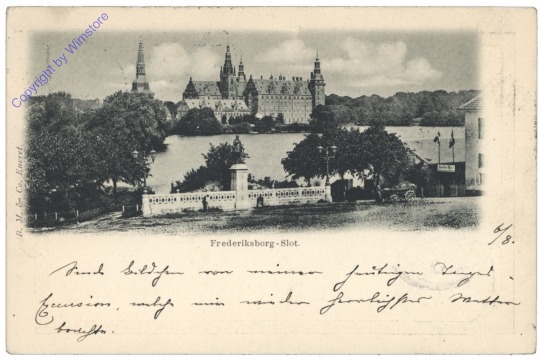 Copyright by Wimstore
B. M. & Co. Eneret.
Frederiksborg-Slot.
6/8.
Sende Bildchen von meiner heutigen
Excursion, welche mir wieder herrlichstes Wetter
brachte.